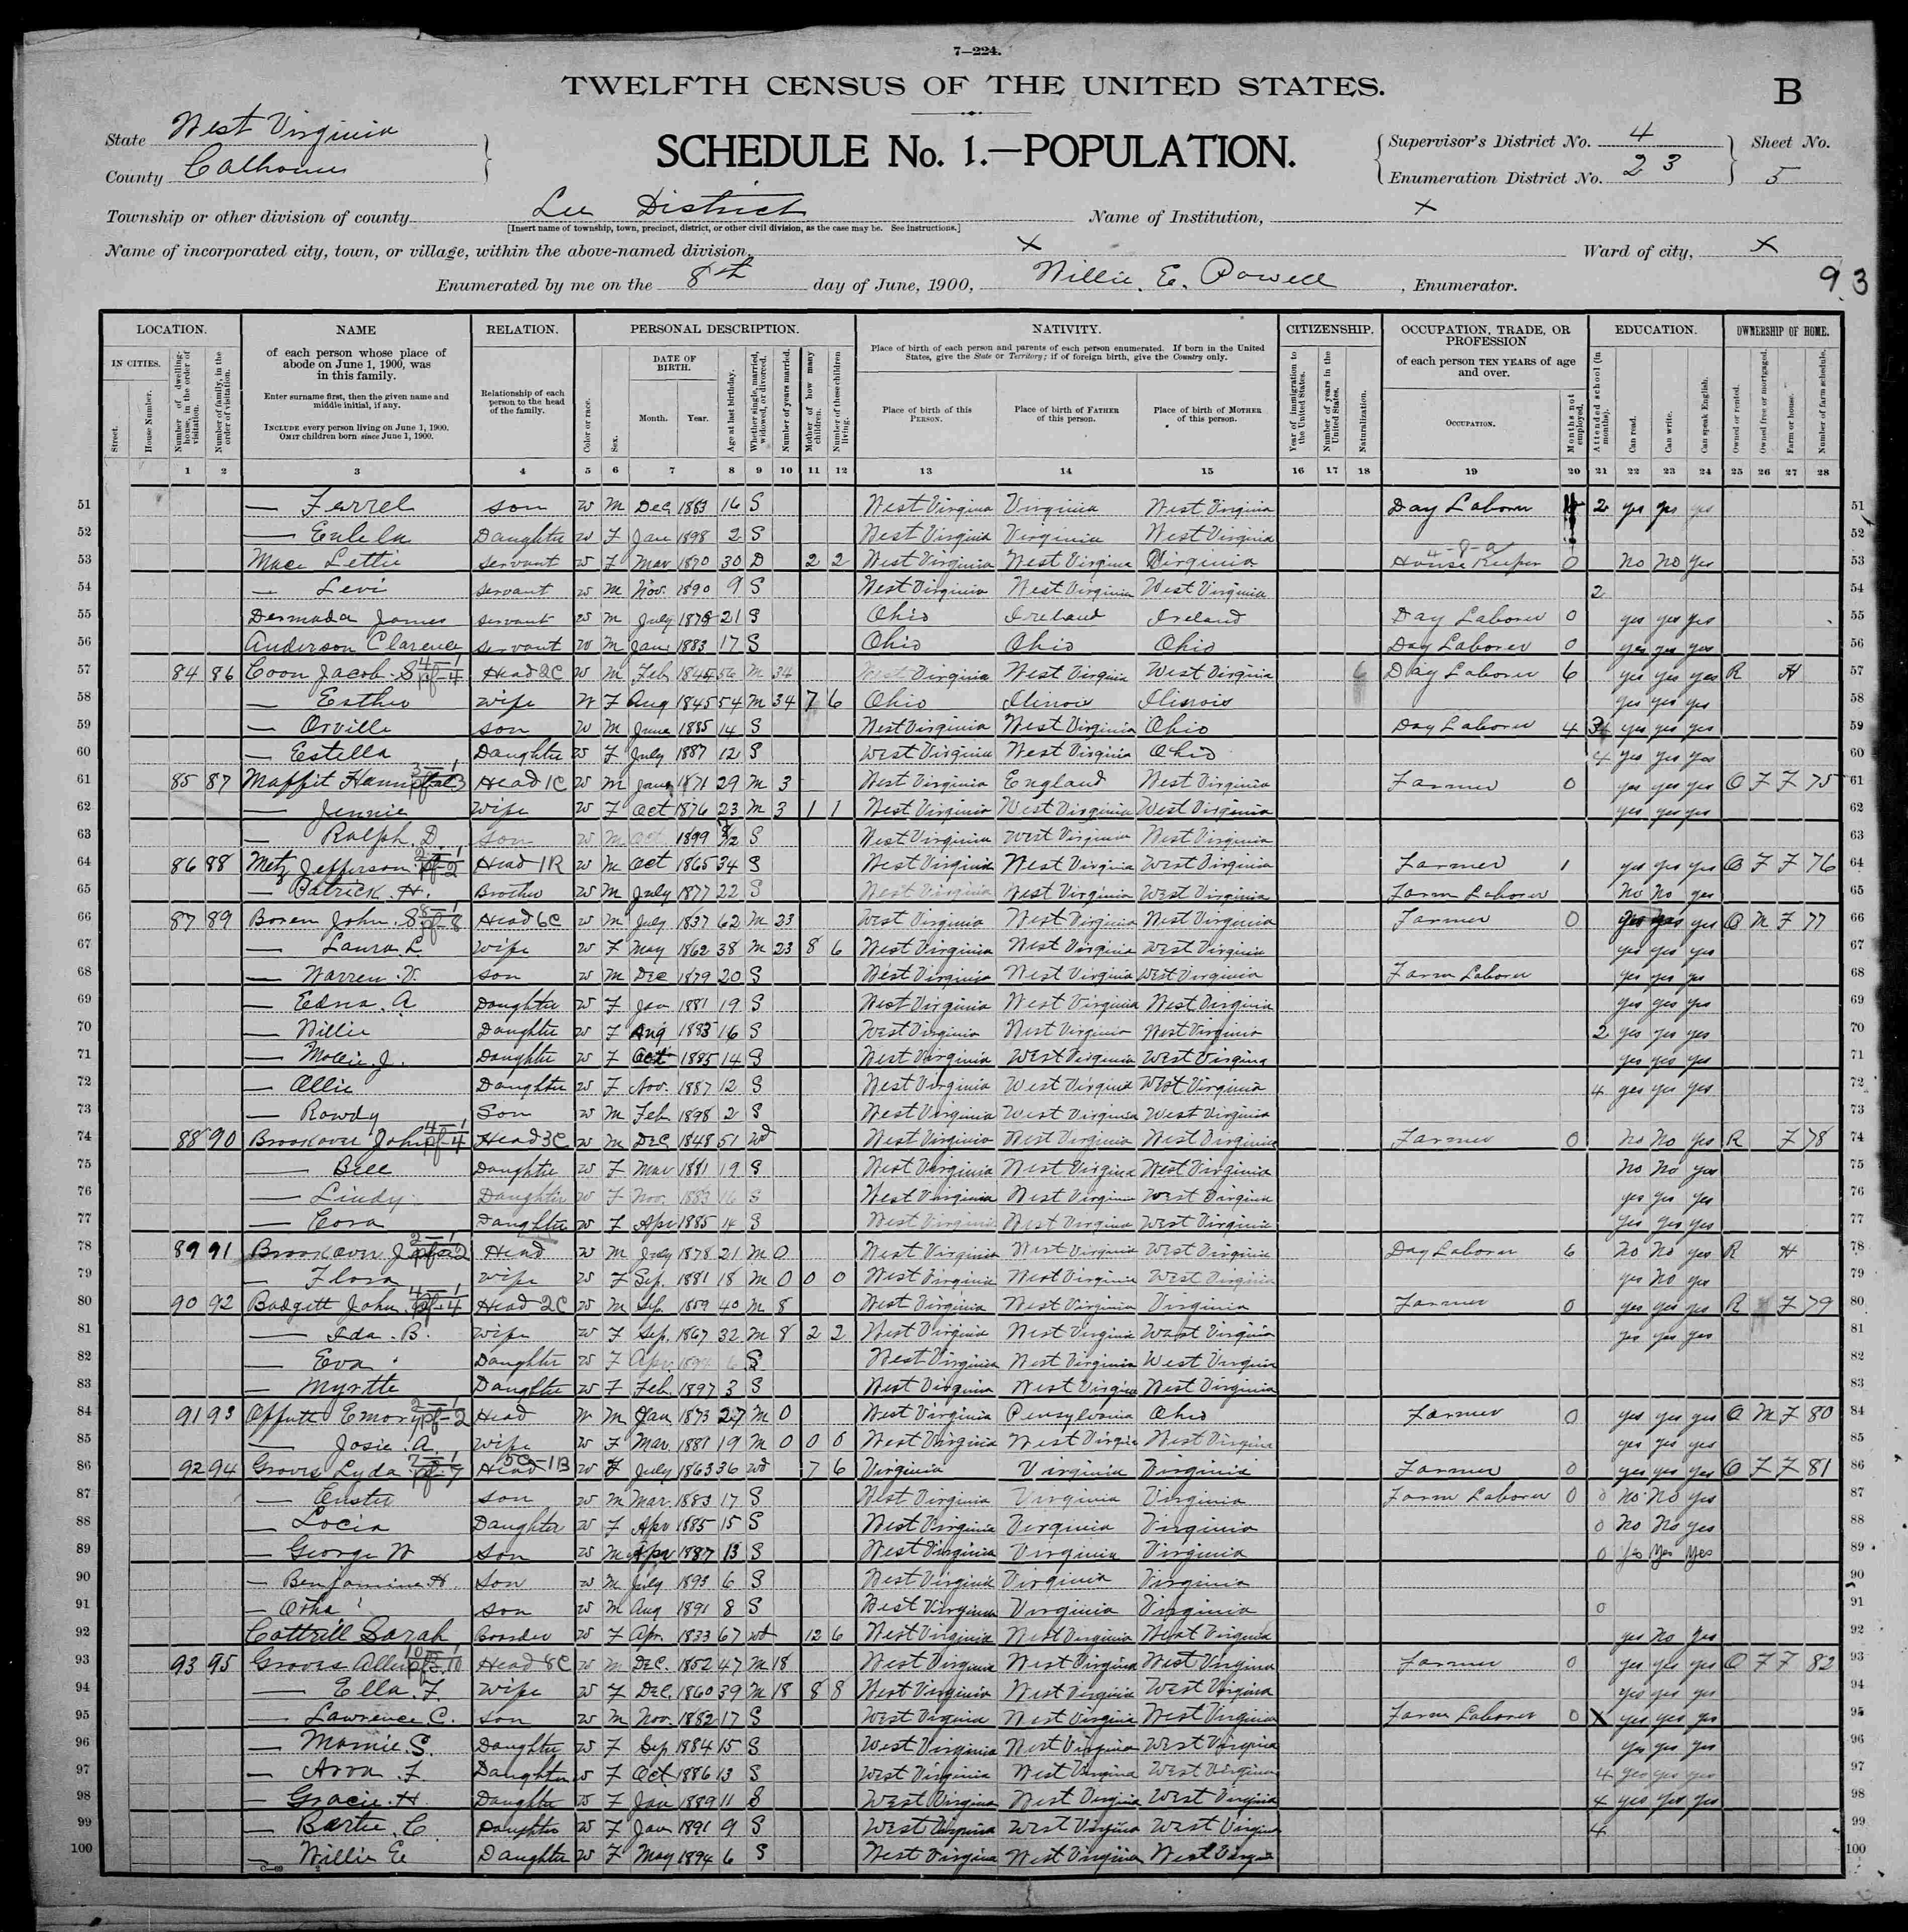 7—224.
TWELFTH CENSUS OF THE UNITED STATES.
B
State West Virginia
County Calhoun
SCHEDULE No. 1.—POPULATION.
Supervisor's District No. 4
Enumeration District No. 23
Sheet No. 5
Township or other division of county Lee District
[Insert name of township, town, precinct, district, or other civil division, as the case may be. See instructions.]
Name of Institution, X
Name of incorporated city, town, or village, within the above-named division, X
Ward of city, X
Enumerated by me on the 8th day of June, 1900, Willie. E. Powell, Enumerator.
93
LOCATION. NAME RELATION. PERSONAL DESCRIPTION. NATIVITY. CITIZENSHIP. OCCUPATION, TRADE, OR PROFESSION EDUCATION. OWNERSHIP OF HOME.
IN CITIES. Street. House Number. Number of dwelling-house, in the order of visitation. Number of family, in the order of visitation.
of each person whose place of abode on June 1, 1900, was in this family.
Enter surname first, then the given name and middle initial, if any.
INCLUDE every person living on June 1, 1900. OMIT children born since June 1, 1900.
Relationship of each person to the head of the family.
Color or race. Sex. DATE OF BIRTH. Month. Year. Age at last birthday. Whether single, married, widowed, or divorced. Number of years married. Mother of how many children. Number of these children living.
Place of birth of each person and parents of each person enumerated. If born in the United States, give the State or Territory; if of foreign birth, give the Country only.
Place of birth of this PERSON. Place of birth of FATHER of this person. Place of birth of MOTHER of this person.
Year of immigration to the United States. Number of years in the United States. Naturalization.
of each person TEN YEARS of age and over.
OCCUPATION. Months not employed.
Attended school (in months). Can read. Can write. Can speak English.
Owned or rented. Owned free or mortgaged. Farm or house. Number of farm schedule.
1 2 3 4 5 6 7 8 9 10 11 12 13 14 15 16 17 18 19 20 21 22 23 24 25 26 27 28
51 — Ferrel son W M Dec 1883 16 S West Virginia Virginia West Virginia Day Laborer 2 yes yes yes 51
52 — Eulela Daughter W F Jan 1898 2 S West Virginia Virginia West Virginia 52
53 Mace Lettie servant W F Mar 1870 30 D 2 2 West Virginia West Virginia Virginia House Keeper 0 No No yes 53
54 — Levi servant W M Nov. 1890 9 S West Virginia West Virginia West Virginia 2 54
55 Dermada James servant W M July 21 S Ohio Ireland Ireland Day Laborer 0 yes yes yes 55
56 Anderson Clarence servant W M Jan 1883 17 S Ohio Ohio Ohio Day Laborer 0 yes yes yes 56
57 84 86 Coon Jacob. S Head 2C W M Feb M 34 West Virginia West Virginia West Virginia Day Laborer 6 yes yes yes R H 57
58 — Esther wife W F Aug 1845 54 M 34 7 6 Ohio Ilinois Ilinois yes yes yes 58
59 — Orville son W M June 1885 14 S West Virginia West Virginia Ohio Day Laborer 4 yes yes yes 59
60 — Estella Daughter W F July 1887 12 S West Virginia West Virginia Ohio 4 yes yes yes 60
61 85 87 Maffit Head 1C W M Jan 1871 29 M 3 West Virginia England West Virginia Farmer 0 yes yes yes O F F 75 61
62 — Jennie wife W F Oct 1876 23 M 3 1 1 West Virginia West Virginia West Virginia yes yes yes 62
63 — Ralph. D. son W M Oct 1899 S West Virginia West Virginia West Virginia 63
64 86 88 Metz Jefferson Head 1R W M Oct 1865 34 S West Virginia West Virginia West Virginia Farmer 1 yes yes yes O F F 76 64
65 — Patrick. H. Brother W M July 1877 22 S West Virginia West Virginia West Virginia Farm Laborer No No yes 65
66 87 89 Boren John. S Head 6C W M July 1837 62 M 23 West Virginia West Virginia West Virginia Farmer 0 yes yes yes O M F 77 66
67 — Laura. L wife W F May 1862 38 M 23 8 6 West Virginia West Virginia West Virginia yes yes yes 67
68 — Warren. V. son W M Dec 1879 20 S West Virginia West Virginia West Virginia Farm Laborer yes yes yes 68
69 — Edna. A Daughter W F Jan 1881 19 S West Virginia West Virginia West Virginia yes yes yes 69
70 — Willie Daughter W F Aug 1883 16 S West Virginia West Virginia West Virginia 2 yes yes yes 70
71 — Mollie J. Daughter W F Oct 1885 14 S West Virginia West Virginia West Virginia yes yes yes 71
72 — Ollie Daughter W F Nov. 1887 12 S West Virginia West Virginia West Virginia 4 yes yes yes 72
73 — Rowdy Son W M Feb 1898 2 S West Virginia West Virginia West Virginia 73
74 88 90 Brookover John Head 3C W M Dec 1848 51 Wd West Virginia West Virginia West Virginia Farmer 0 No No yes R F 78 74
75 — Bell Daughter W F Mar 1881 19 S West Virginia West Virginia West Virginia No No yes 75
76 — Lindy Daughter W F Nov. 1883 16 S West Virginia West Virginia West Virginia yes yes yes 76
77 — Cora Daughter W F Apr 1885 14 S West Virginia West Virginia West Virginia yes yes yes 77
78 89 91 Brookover J Head W M July 1878 21 M 0 West Virginia West Virginia West Virginia Day Laborer 6 No No yes R H 78
79 — Flora wife W F Sep. 1881 18 M 0 0 0 West Virginia West Virginia West Virginia yes No yes 79
80 90 92 Badgett John. Head 2C W M Sep. 1859 40 M 8 West Virginia West Virginia Virginia Farmer 0 yes yes yes R F 79 80
81 — Ida. B. wife W F Sep. 1867 32 M 8 2 2 West Virginia West Virginia West Virginia yes yes yes 81
82 — Eva Daughter W F Apr. 6 S West Virginia West Virginia West Virginia 82
83 — Myrtte Daughter W F Feb. 1897 3 S West Virginia West Virginia West Virginia 83
84 91 93 Offutt Emory Head W M Jan 1873 27 M 0 West Virginia Pensylvania Ohio Farmer 0 yes yes yes O M F 80 84
85 — Josie. A. wife W F Mar. 1881 19 M 0 0 0 West Virginia West Virginia West Virginia yes yes yes 85
86 92 94 Groves Lyda Head 5C-1B W F July 1863 36 Wd 7 6 Virginia Virginia Virginia Farmer 0 yes yes yes O F F 81 86
87 — Custer son W M Mar. 1883 17 S West Virginia Virginia Virginia Farm Laborer 0 0 No No yes 87
88 — Locia Daughter W F Apr 1885 15 S West Virginia Virginia Virginia 0 No No yes 88
89 — George W son W M Apr 1887 13 S West Virginia Virginia Virginia 0 yes yes yes 89
90 — Benjamine H. son W M July 1893 6 S West Virginia Virginia Virginia 90
91 — Otha son W M Aug 1891 8 S West Virginia Virginia Virginia 0 91
92 Cottrill Sarah Boarder W F Apr. 1833 67 wd 12 6 West Virginia West Virginia West Virginia yes No yes 92
93 93 95 Groves Head 8C W M Dec. 1852 47 M 18 West Virginia West Virginia West Virginia Farmer 0 yes yes yes O F F 82 93
94 — Ella. F. wife W F Dec. 1860 39 M 18 8 8 West Virginia West Virginia West Virginia yes yes yes 94
95 — Lawrence C. son W M Nov. 1882 17 S West Virginia West Virginia West Virginia Farm Laborer 0 X yes yes yes 95
96 — Mamie. S. Daughter W F Sep 1884 15 S West Virginia West Virginia West Virginia yes yes yes 96
97 — Arva. F. Daughter W F Oct 1886 13 S West Virginia West Virginia West Virginia 4 yes yes yes 97
98 — Gracie. H. Daughter W F Jan 1889 11 S West Virginia West Virginia West Virginia 4 yes yes yes 98
99 — Bertie. C. Daughter W F Jan 1891 9 S West Virginia West Virginia West Virginia 4 99
100 — Willie E Daughter W F May 1894 6 S West Virginia West Virginia West Virginia 100